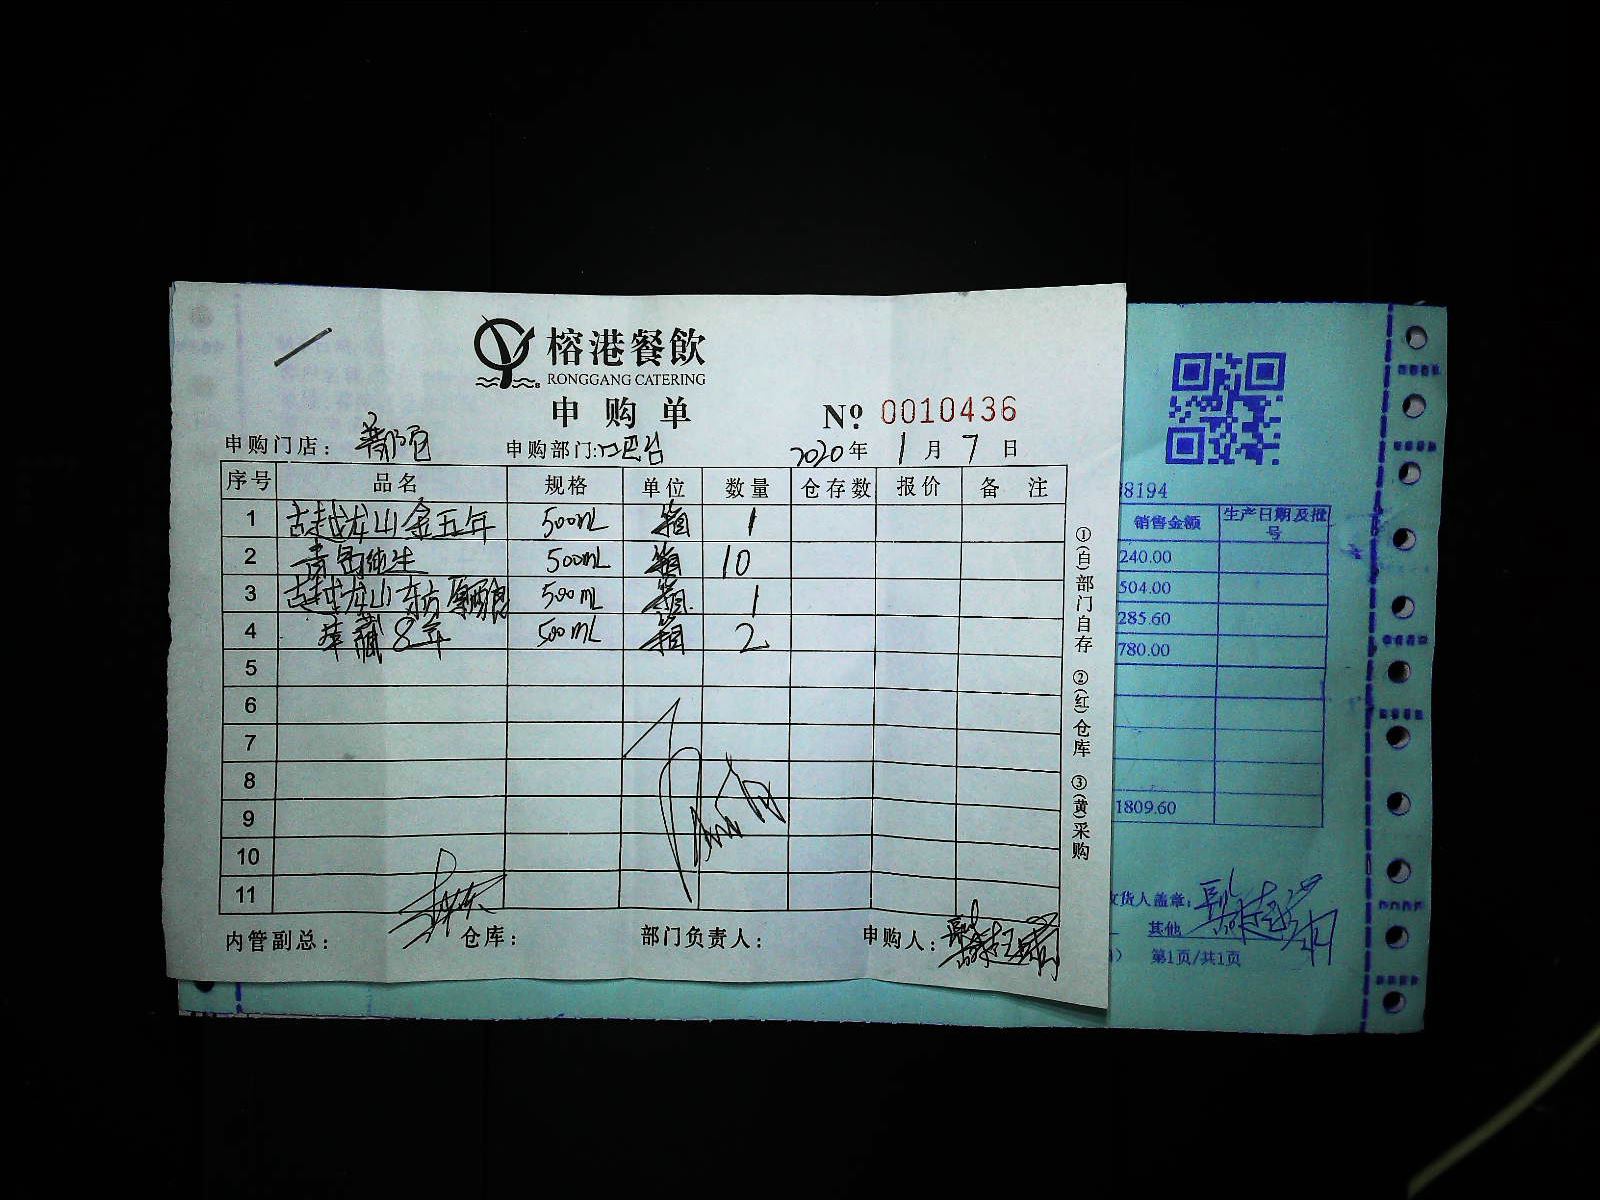 榕港餐飲
RONGGANG CATERING
申购单 Nº 0010436
申购门店： 申购部门: 吧台 2020年1月7日
序号 品名 规格 单位 数量 仓存数 报价 备注
1 古越龙山金五年 500mL 箱 1
2 青岛纯生 500mL 箱 10
3 古越龙山东方原酿 500mL 箱 1
4 库藏8年 500mL 箱 2
5
6
7
8
9
10
11
内管副总： 仓库： 部门负责人： 申购人：
①(白)部门自存 ②(红)仓库 ③(黄)采购
38194
销售金额 生产日期及批号
240.00
504.00
285.60
780.00
1809.60
收货人盖章：
其他
第1页/共1页